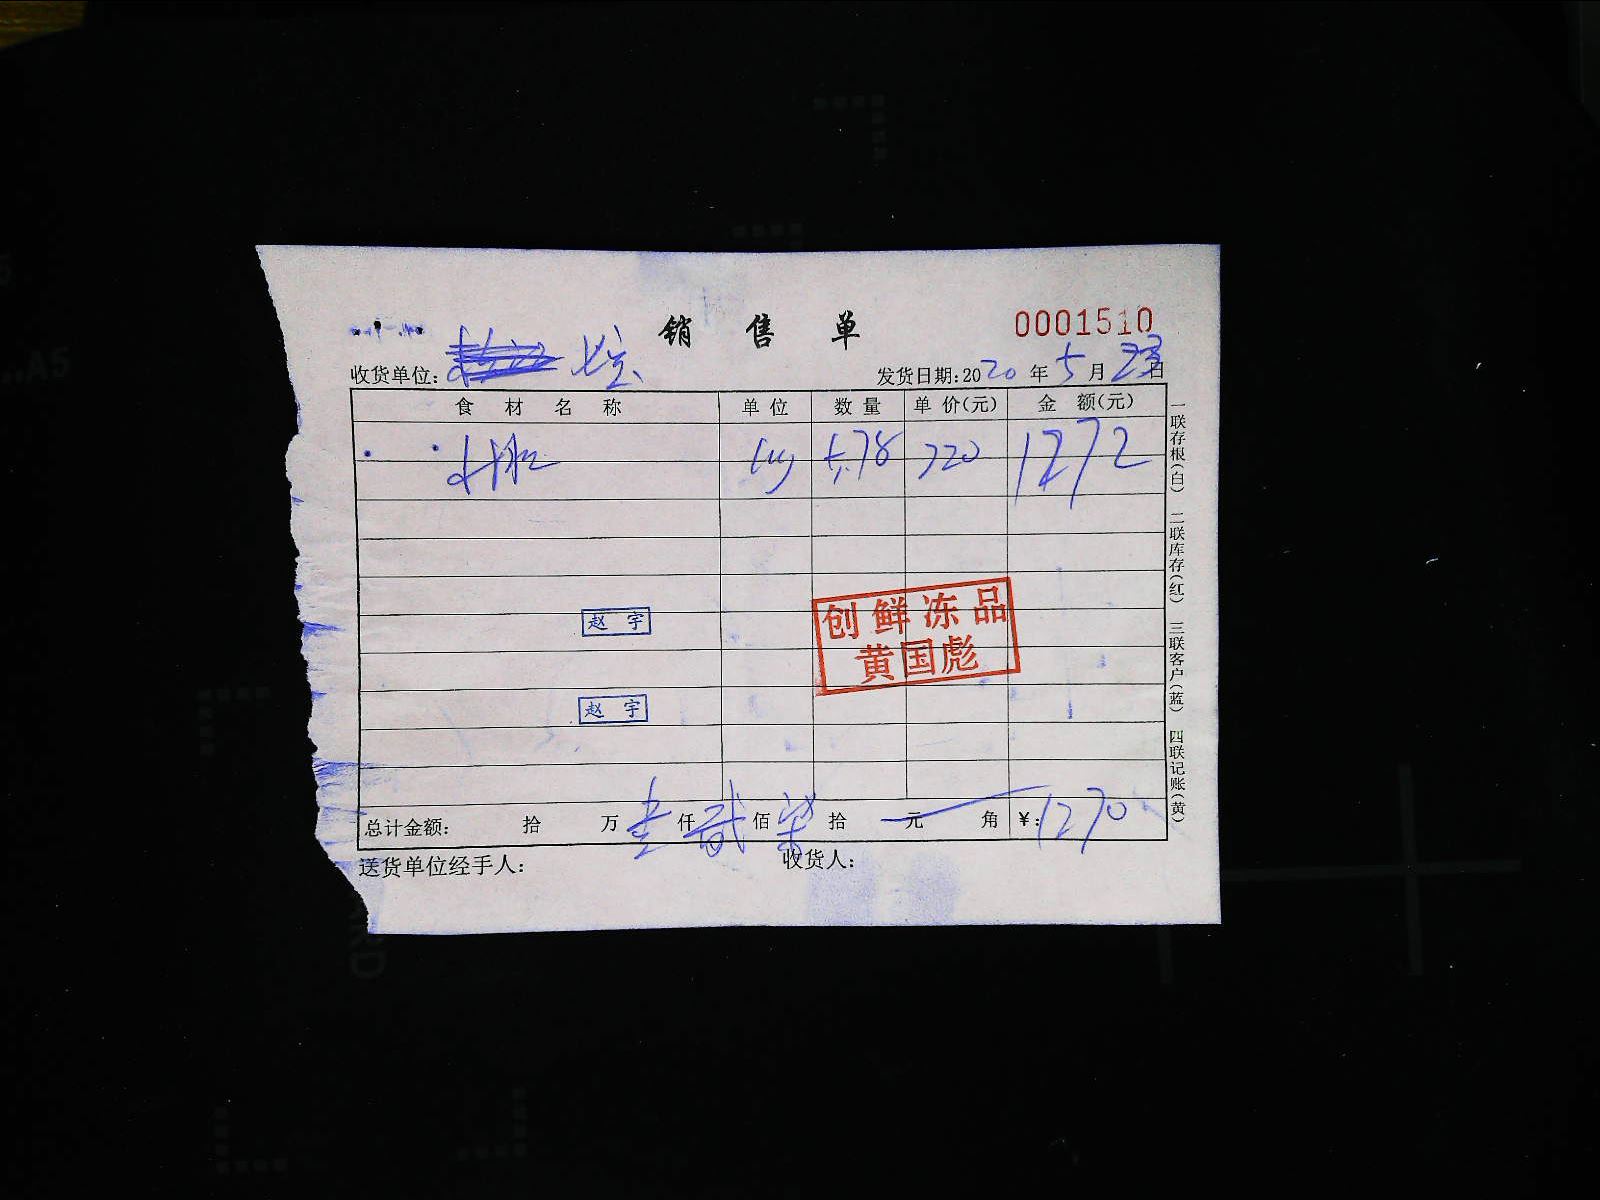 销 售 单
0001510
收货单位:
发货日期:2020 年 5 月 23 日
食 材 名 称 单 位 数 量 单 价(元) 金 额(元)
kg 5.78 220 1272
创鲜冻品
黄国彪
赵 宇
赵 宇
总计金额: 拾 万 壹 仟 贰 佰 柒 拾 元 角 ¥:1270
送货单位经手人: 收货人:
一联存根(白) 二联库存(红) 三联客户(蓝) 四联记账(黄)
A5